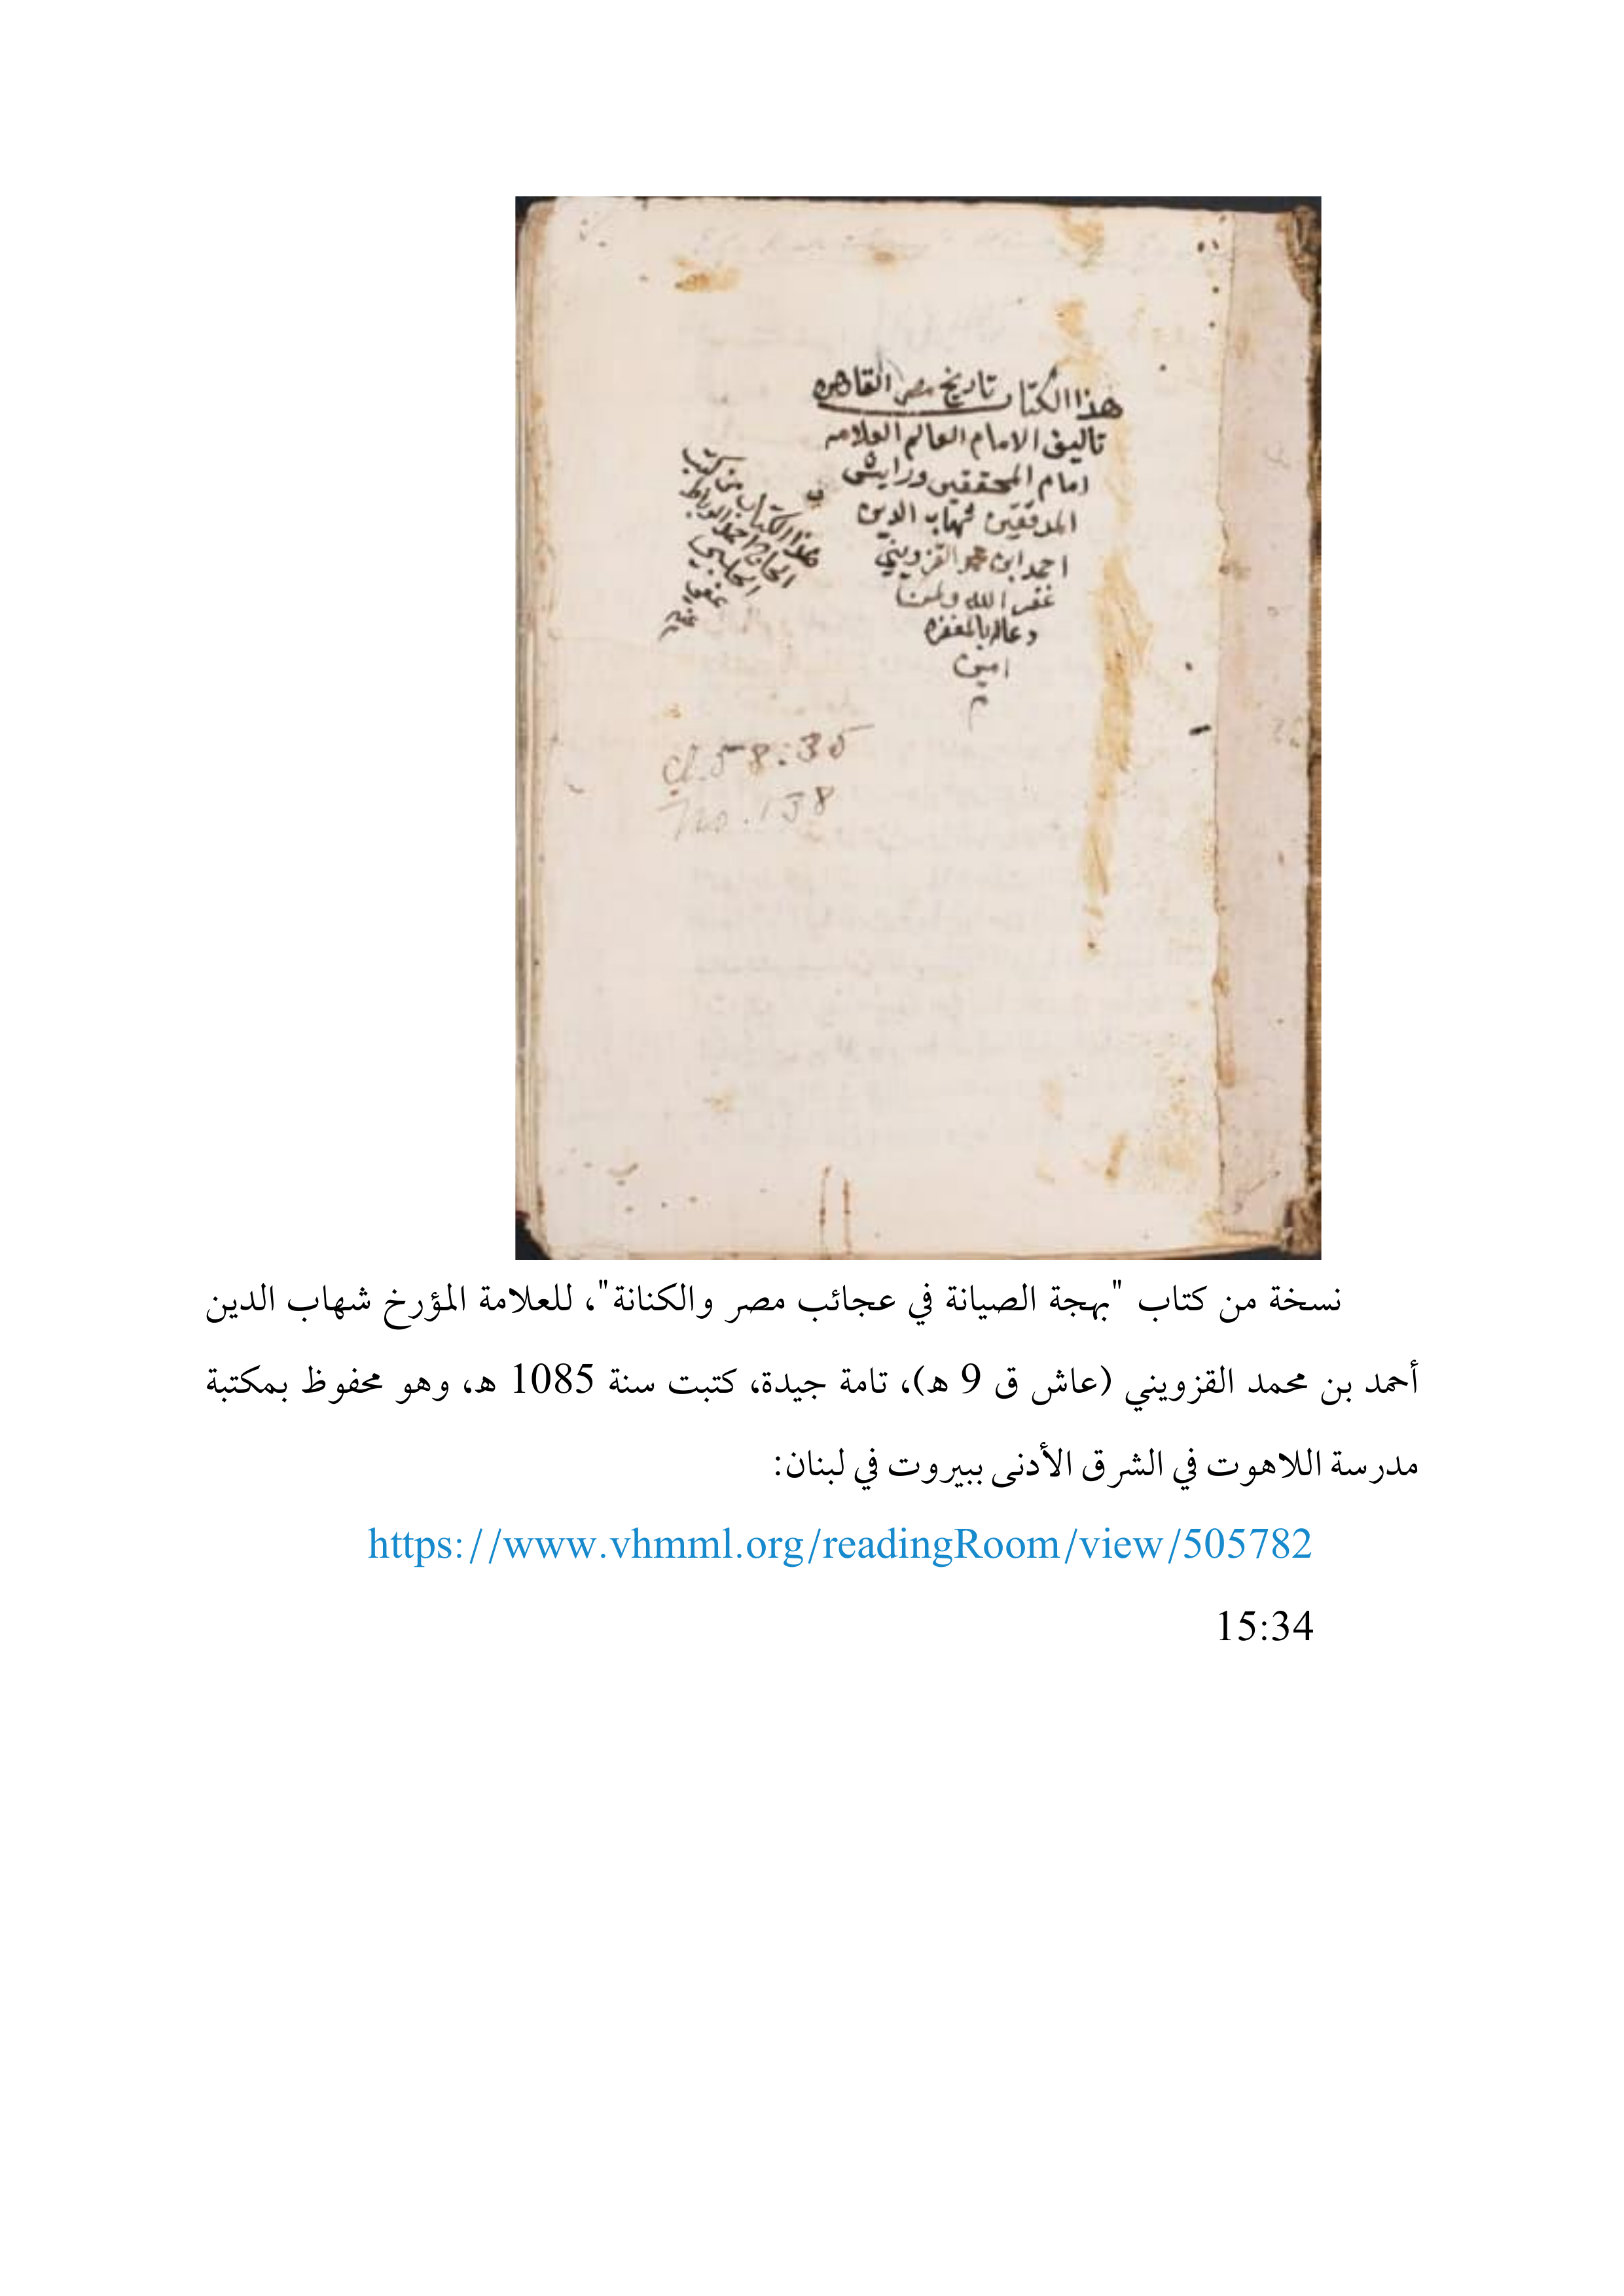 هذا الكتاب تاريخ مصر القاهره
تاليف الامام العالم العلامه
امام المحققين ورايس
المدققين شهاب الدين
احمد ابن محمد القزويني
غفر الله ولمن
دعاله بالمغفره
امين
م
هذا الكتاب من كتب
الحاج احمد الرباط
الحلبي
عفي
عنه
cl. 58:35
no. 138
نسخة من كتاب "بهجة الصيانة في عجائب مصر والكنانة"، للعلامة المؤرخ شهاب الدين
أحمد بن محمد القزويني (عاش ق 9 هـ)، تامة جيدة، كتبت سنة 1085 هـ، وهو محفوظ بمكتبة
مدرسة اللاهوت في الشرق الأدنى ببيروت في لبنان:
https://www.vhmml.org/readingRoom/view/505782
15:34